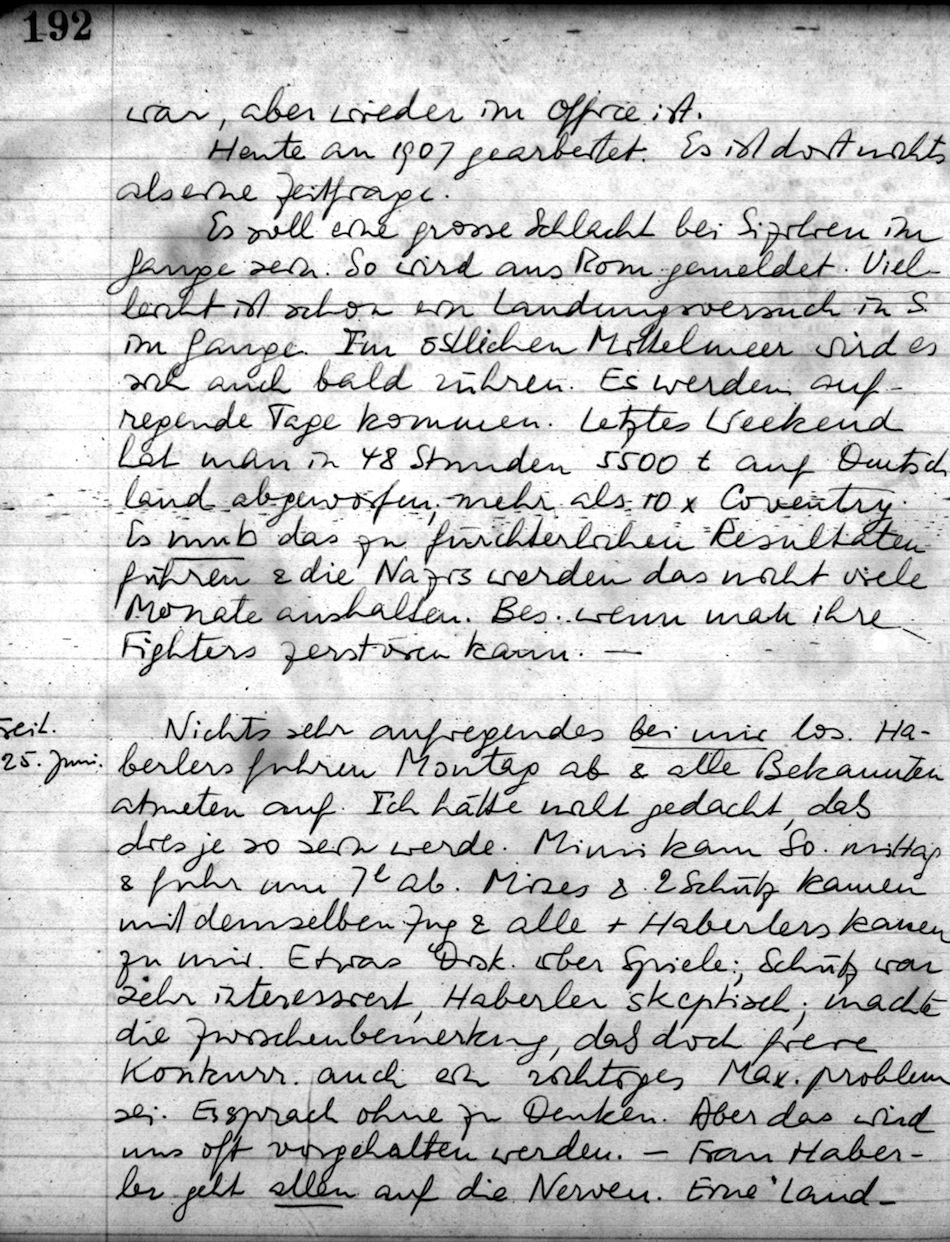 192
war, aber wieder im Office ist.
Heute an 1907 gearbeitet. Es ist dort nichts
als eine Zeitfrage.
Es soll eine grosse Schlacht bei Sizilien im
Gange sein. So wird aus Rom gemeldet. Viel-
leicht ist schon ein Landungsversuch in S.
im Gange. Im östlichen Mittelmeer wird es
sich auch bald rühren. Es werden auf-
regende Tage kommen. Letztes Weekend
hat man in 48 Stunden 5500 t auf Deutsch
land abgeworfen, mehr als 10 x Coventry.
Es muß das zu fürchterlichen Resultaten
führen & die Nazis werden das nicht viele
Monate aushalten. Bes. wenn man ihre
Fighters zerstören kann. —
Freit.
25. Juni.
Nichts sehr aufregendes bei mir los. Ha-
berlers fuhren Montag ab & alle Bekannten
atmeten auf. Ich hätte nicht gedacht, daß
dies je so sein werde. Mimi kam So. mittag
& fuhr um 7h ab. Mises & 2 Schütz kamen
mit demselben Zug & alle + Haberlers kamen
zu mir. Etwas Disk. über Spiele; Schütz war
sehr interessiert, Haberler skeptisch; machte
die Zwischenbemerkung, daß doch freie
Konkurr. auch ein richtiges Max. problem
sei. Er sprach ohne zu Denken. Aber das wird
uns oft vorgehalten werden. — Frau Haber-
ler geht allen auf die Nerven. Eine Land-